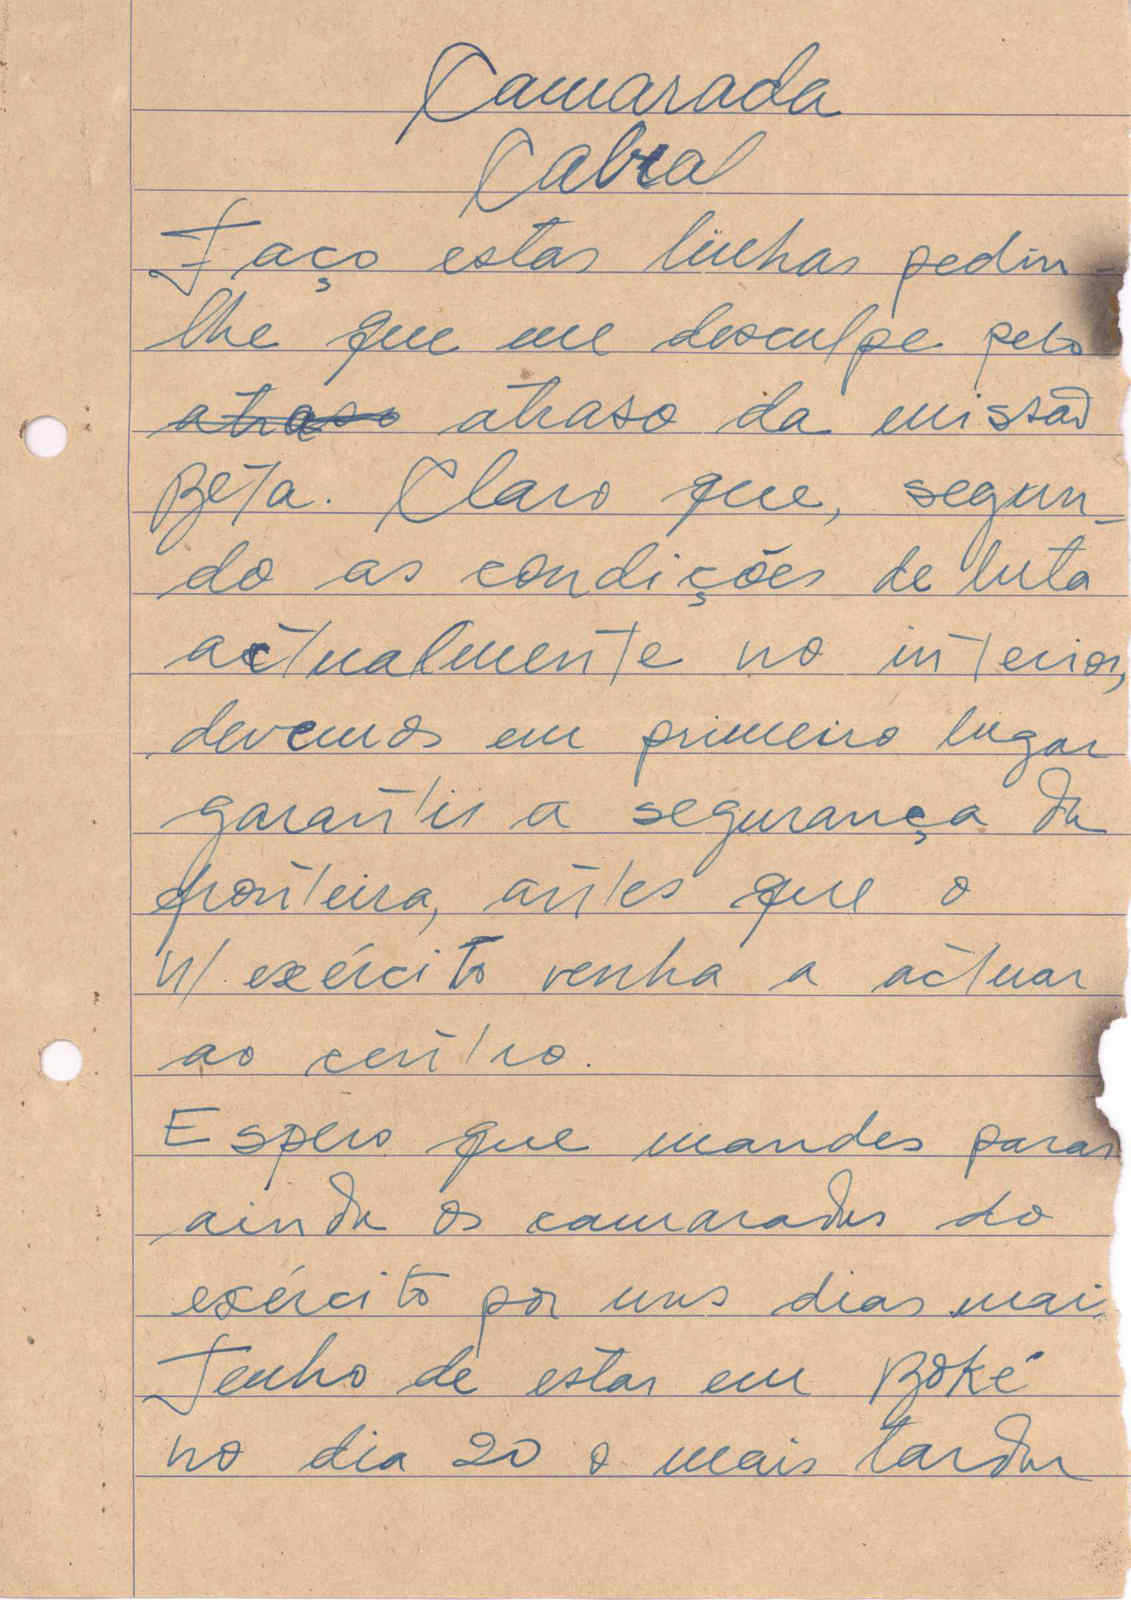 Camarada
Cabral
Faço estas linhas pedin-
lhe que me desculpe pelo
atraso atraso da missão
Béta. Claro que, segun-
do as condições de luta
actualmente no interior,
devemos em primeiro lugar
garantir a segurança da
fronteira, antes que o
n/ exército venha a actuar
ao centro.
Espero que mandes parar
ainda os camaradas do
exército por uns dias mai
Tenho de estar em Boké
no dia 20 o mais tardar